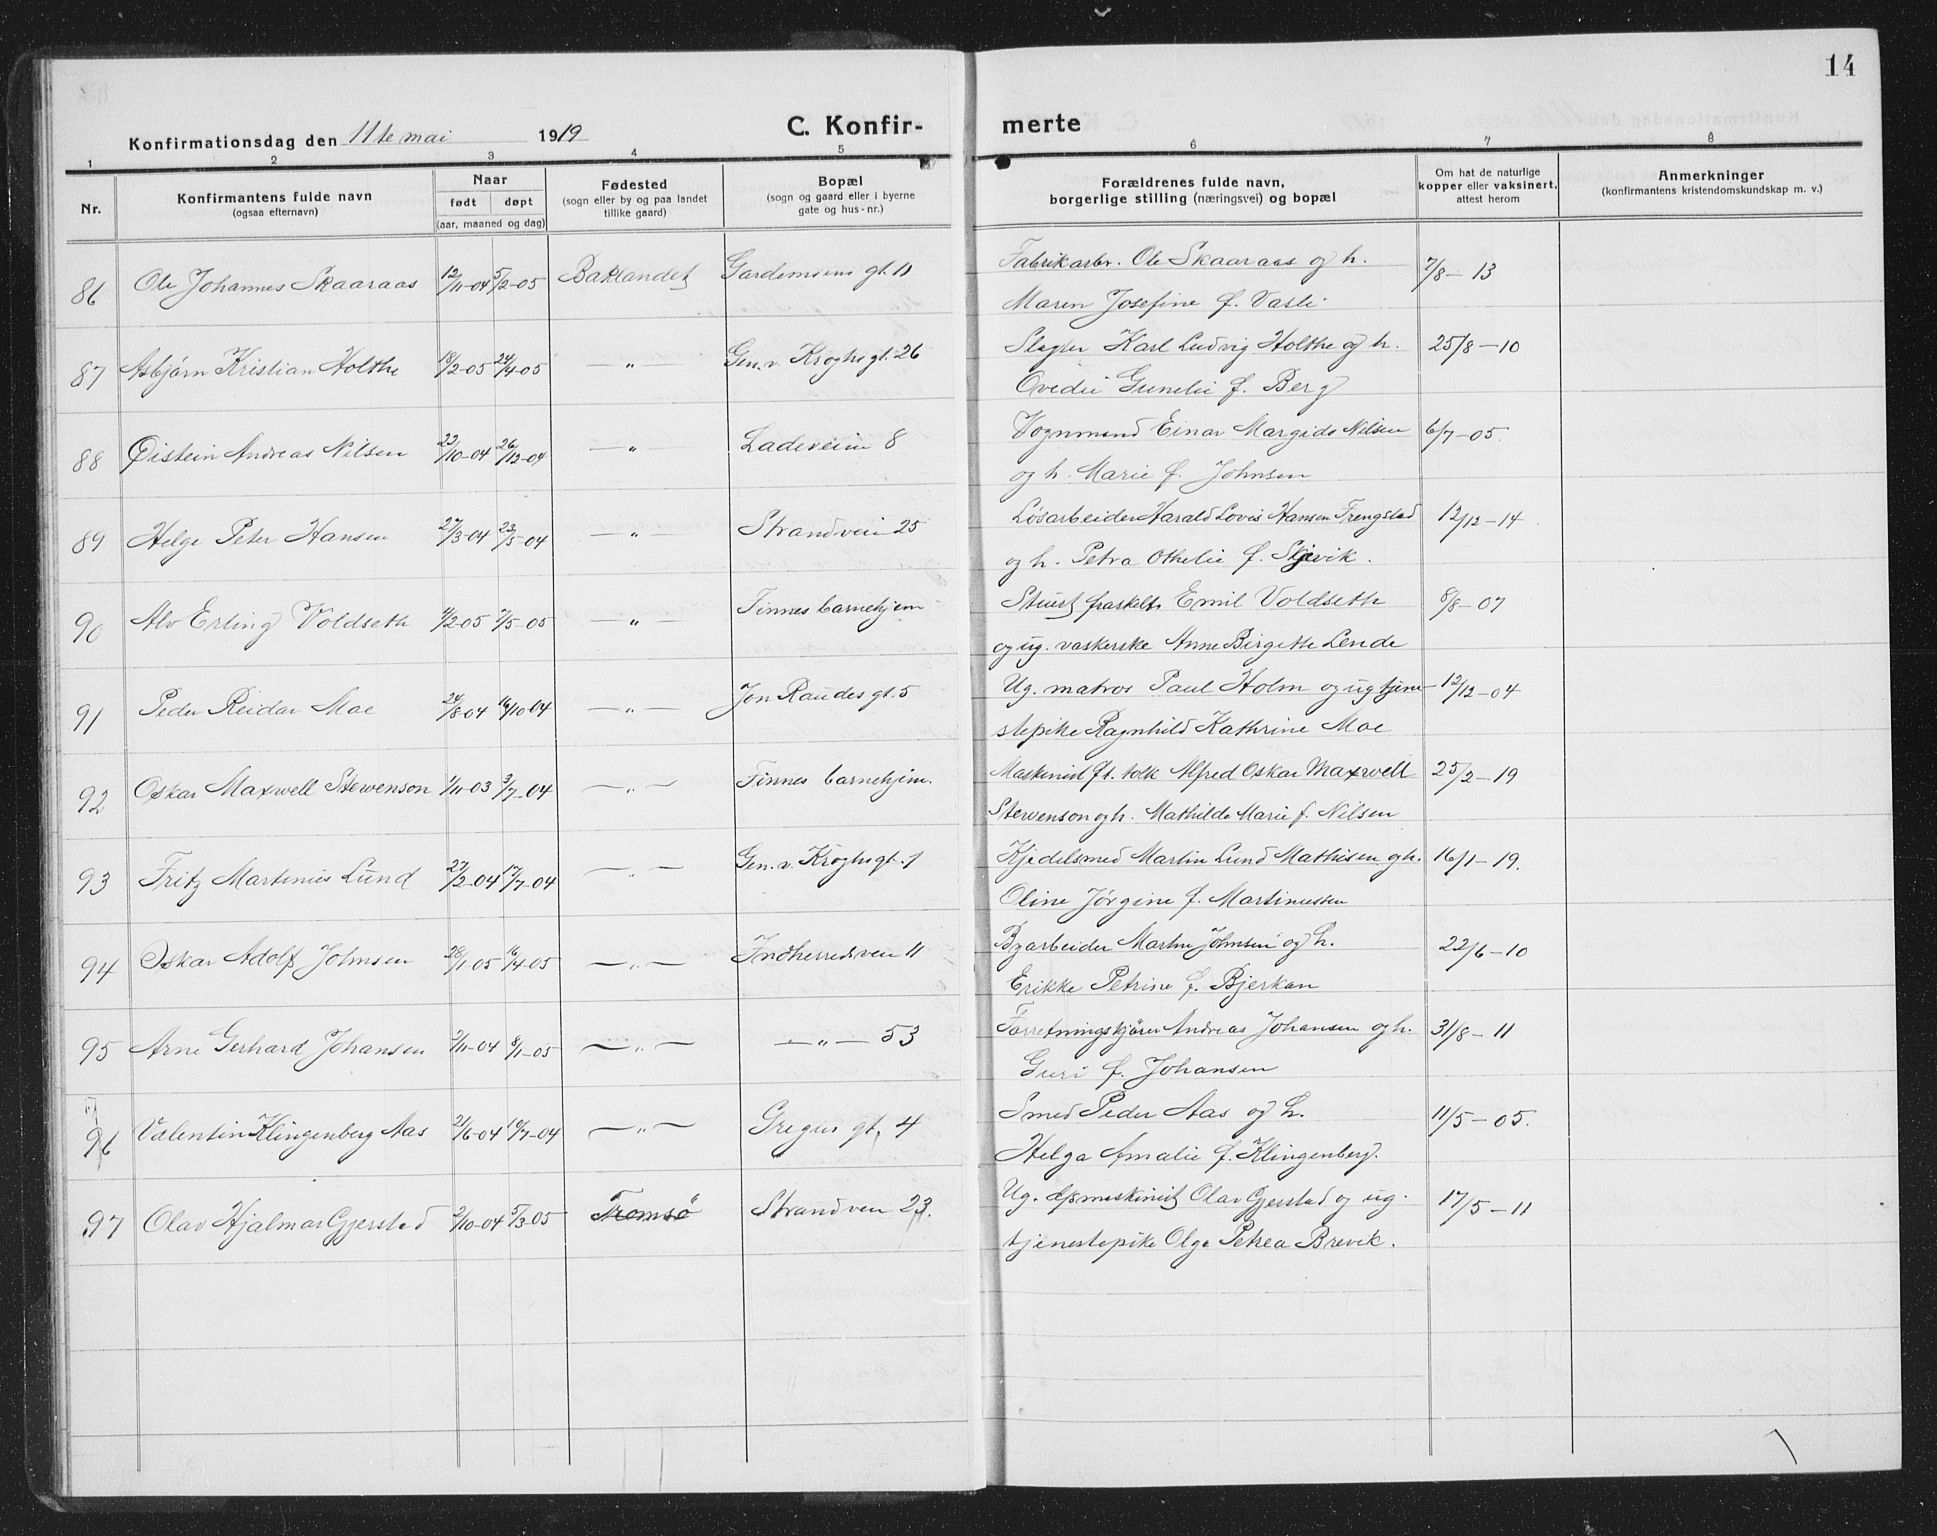 14
Konfirmationsdag den 11te mai 1919
C. Konfirmerte
1 2 3 4 5 6 7 8
Nr. Konfirmantens fulde navn (ogsaa efternavn) Naar født døpt (aar, maaned og dag) Fødested (sogn eller by og paa landet tillike gaard) Bopæl (sogn og gaard eller i byerne gate og hus-nr.) Forældrenes fulde navn, borgerlige stilling (næringsvei) og bopæl Om hat de naturlige kopper eller vaksinert, attest herom Anmerkninger (konfirmantens kristendomskundskap m. v.)
86 Ole Johannes Skaaraas 12/11-04 5/2-05 Baklandet Gardemoens gt. 11 Fabrikarbr. Ole Skaaraas og h. 7/8-13
Maren Josefine f. Vasli
87 Asbjørn Kristian Holthe 18/2-05 24/4-05 —"— Gen. v. Kroghs gt. 26 Slagter Karl Ludvig Holthe og h. 25/8-10
Ovedie Gunelie f. Berg
88 Øistein Andreas Nilsen 22/10-04 26/12-04 —"— Ladeveien 8 Vognmand Einar Margido Nilsen 6/7-05.
og h. Marie f. Johnsen
89 Helge Peter Hansen 27/3-04 23/5-04 —"— Strandveien 25 Løsarbeider Harald Lovis Hansen Frengstad 12/12-14
og h. Petra Othelie f. Skjevik.
90 Alv Erling Voldseth 4/2-05 7/5-05 —"— Finnes barnehjem Stuert fraskelt Emil Voldseth 8/8-07
og ug. vaskerske Anne Birgitte Lende
91 Peder Reidar Moe 24/8-04 16/10-04 —"— Jon Raudes gt. 5 Ug. matros Paul Holm og ug tjene- 12/12-04
stepike Ragnhild Kathrine Moe
92 Oskar Maxwell Stewenson 1/11-03 3/7-04 —"— Finnes barnehjem. Maskinist ft. tolk Alfred Oskar Maxwell 25/2-19
Stewenson og h. Mathilde Marie f. Nilsen
93 Fritz Martinius Lund 27/2-04 17/7-04 —"— Gen. v. Kroghs gt. 1 Kjedelsmed Martin Lund Mathisen og h. 16/1-19.
Oline Jørgine f. Martinussen
94 Oskar Adolf Johnsen 28/1-05 16/4-05 —"— Indherredsveien 11 Byarbeider Martin Johnsen og h. 22/6-10
Erikke Petrine f. Bjerkan
95 Arne Gerhard Johansen 2/11-04 8/1-05 —"— —"— 53 Forretningskjører Andreas Johansen og h. 31/8-11
Guri f. Johansen
96 Valentin Klingenberg Aas 2/6-04 10/7-04 —"— Gregus gt. 4 Smed Peder Aas og h. 11/5-05.
Helga Amalie f. Klingenberg.
97 Olav Hjalmar Gjerstad 2/10-04 5/3-05 Tromsø Strandveien 23. Ug. dpmaskinist Olav Gjerstad og ug. 17/5-11
tjenestepike Olga Petrea Brevik.